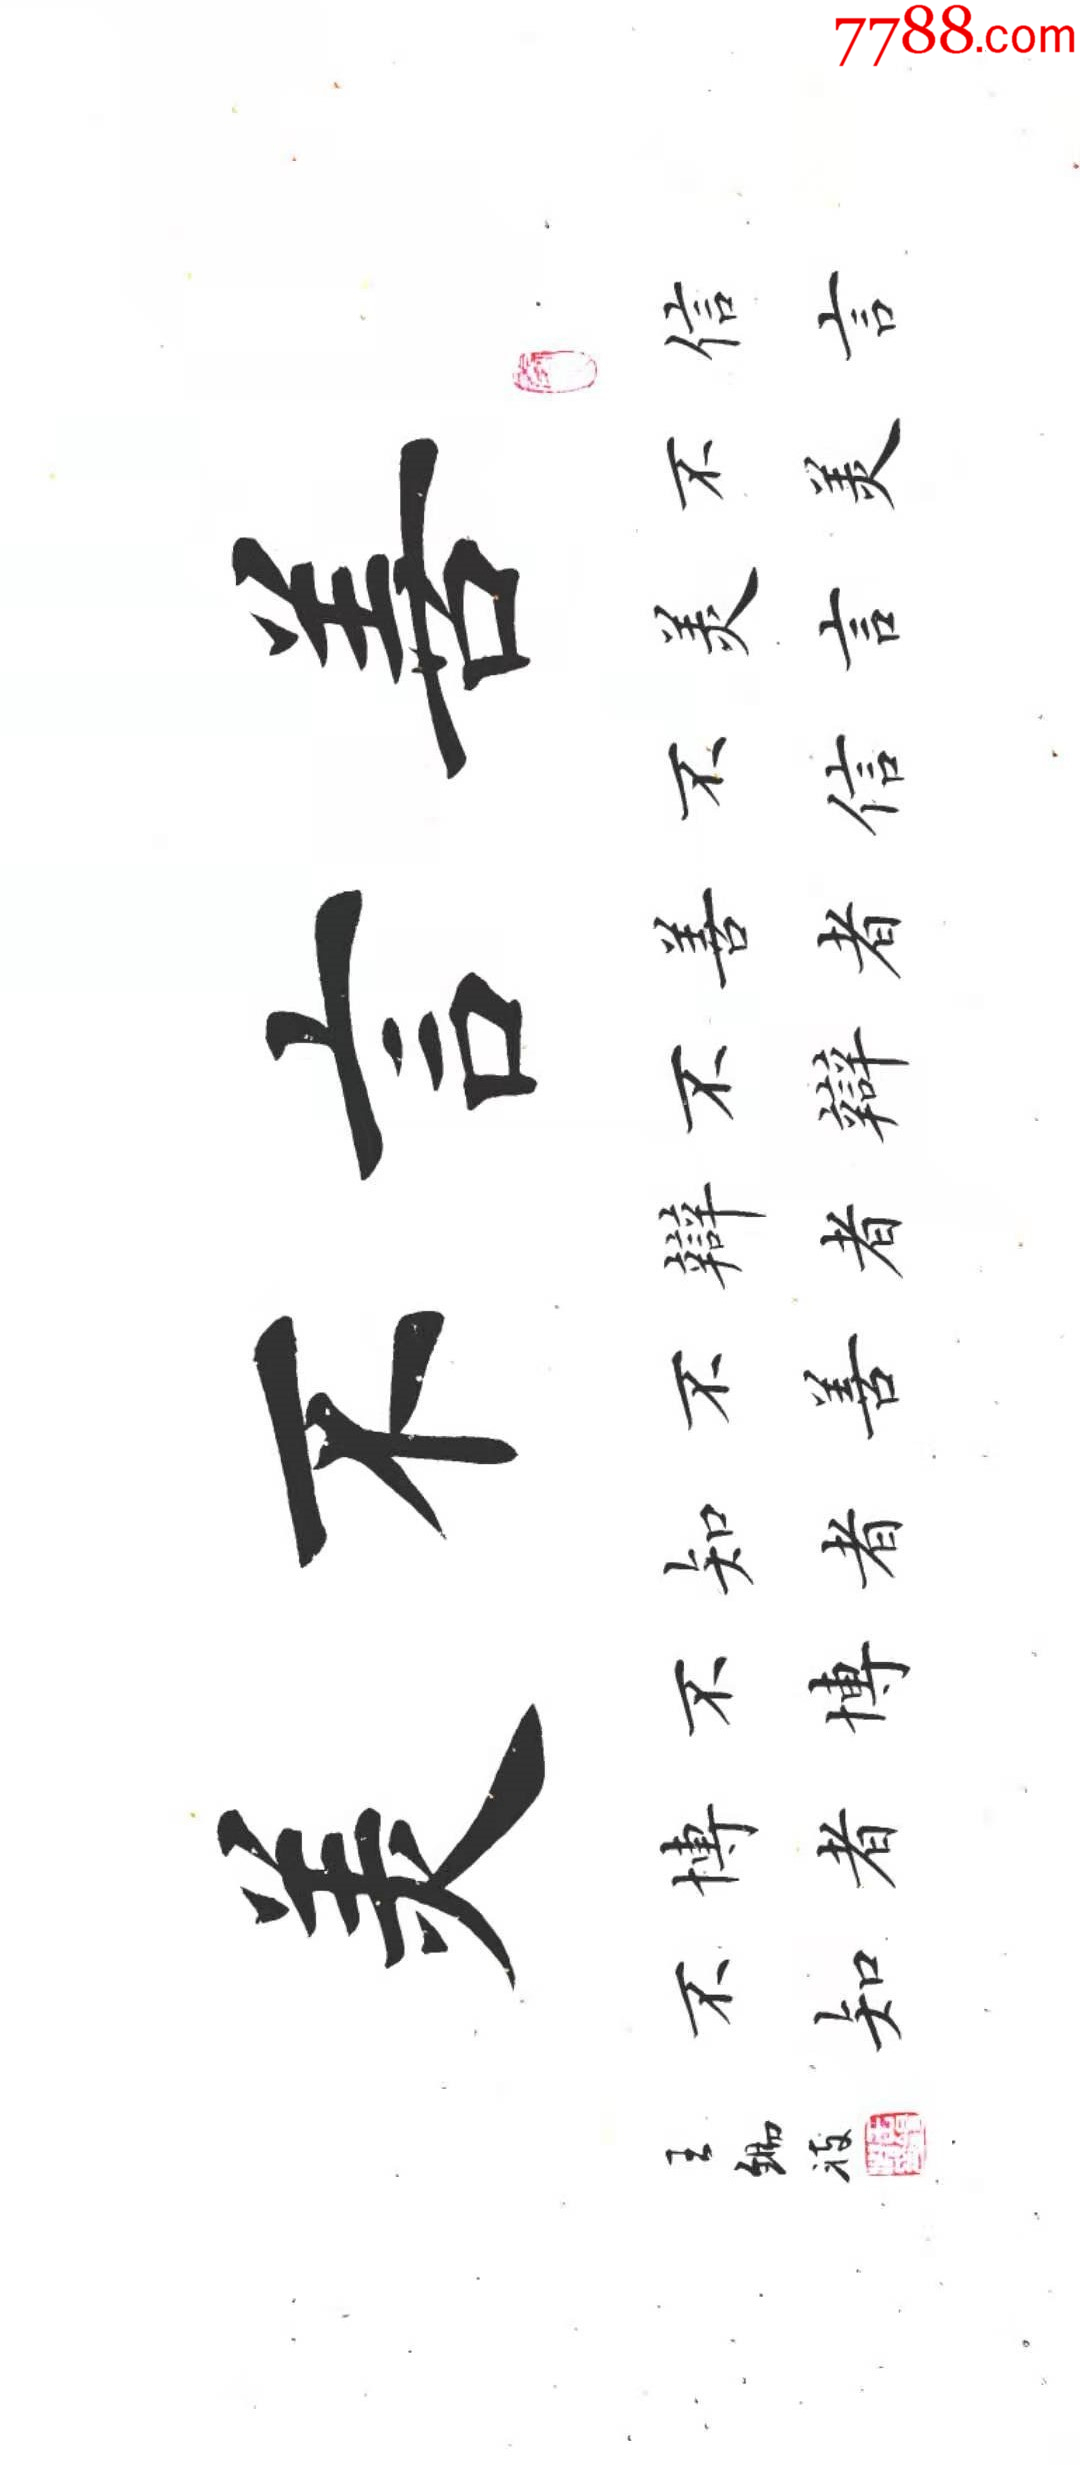 善言不美
信言
不美
美言
不信
善者
不辯
辯者
不善
知者
不博
博者
不知
王
7788.com